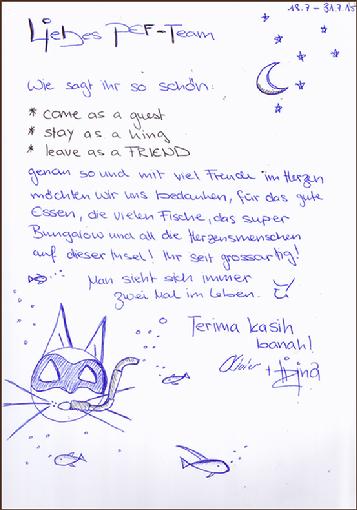 18.7 - 31.7.15
Liebes PEF-Team
Wie sagt ihr so schön:
* come as a guest
* stay as a king
* leave as a FRIEND
genau so und mit viel Freude im Herzen
möchten wir uns bedanken, für das gute
Essen, die vielen Fische, das super
Bungalow und all die Herzensmenschen
auf dieser Insel! Ihr seit grossartig!
Man sieht sich immer
zwei Mal im Leben.
Terima kasih
banah!